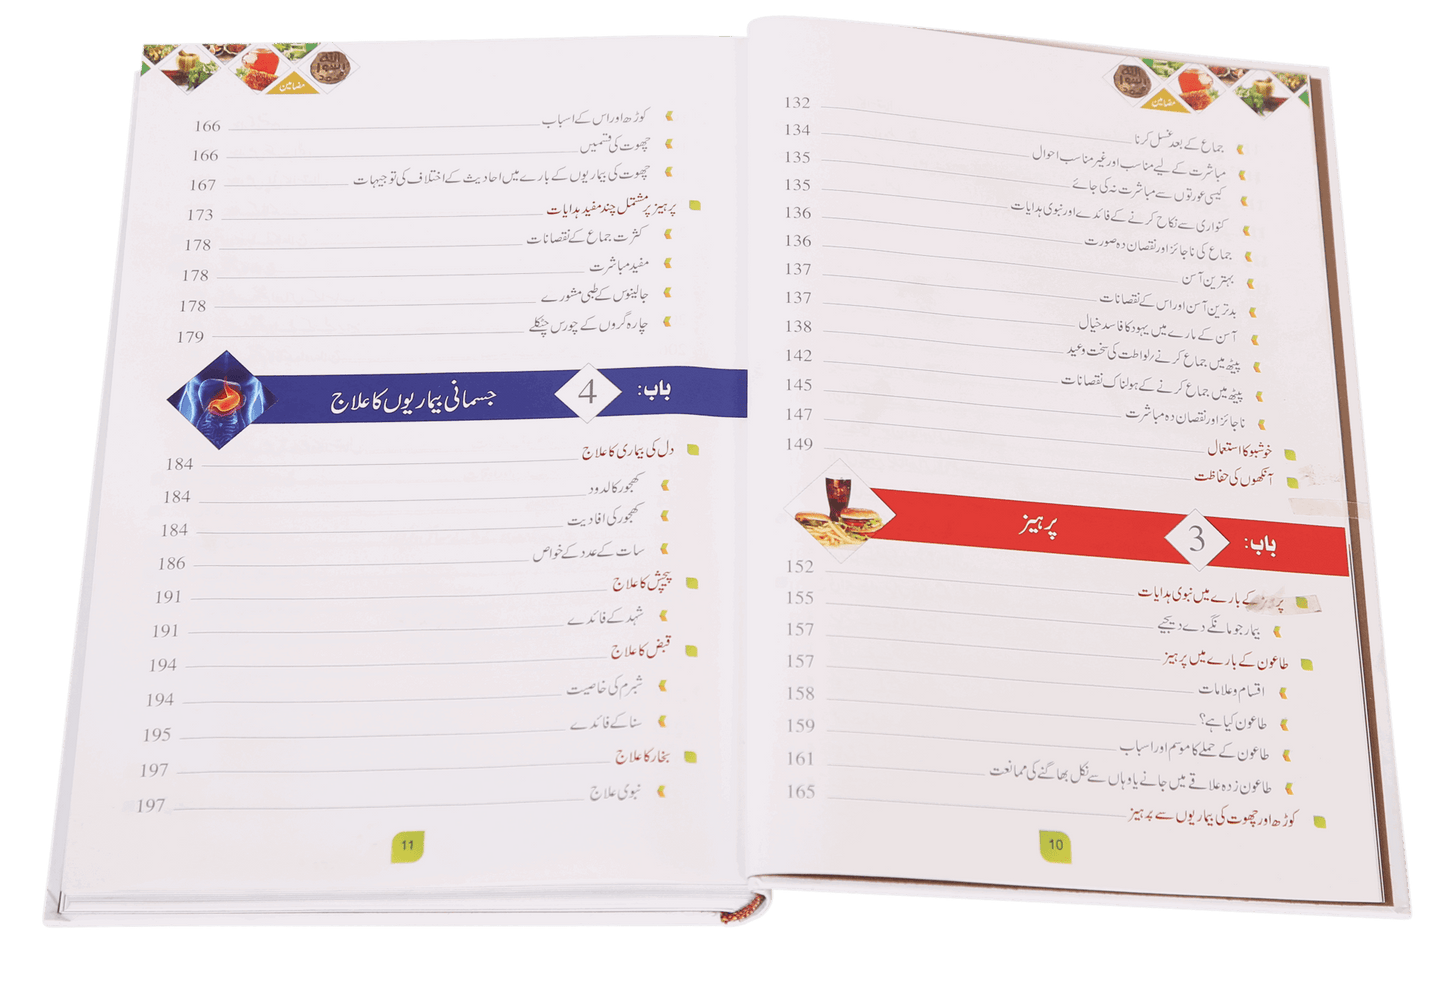 مضامین
جماع کے بعد غسل کرنا 132
مباشرت کے لیے مناسب اور غیر مناسب احوال 134
کیسی عورتوں سے مباشرت نہ کی جائے 135
کنواری سے نکاح کرنے کے فائدے اور نبوی ہدایات 135
جماع کی ناجائز اور نقصان دہ صورت 136
بہترین آسن 136
بدترین آسن اور اس کے نقصانات 137
آسن کے بارے میں یہود کا فاسد خیال 137
پیٹھ میں جماع کرنے/لواطت کی سخت وعید 138
پیٹھ میں جماع کرنے کے ہولناک نقصانات 142
ناجائز اور نقصان دہ مباشرت 145
خوشبو کا استعمال 147
آنکھوں کی حفاظت 149
باب: 3 پرہیز
پرہیز کے بارے میں نبوی ہدایات 152
بیمار جو مانگے دے دیجیے 155
طاعون کے بارے میں پرہیز 157
اقسام و علامات 157
طاعون کیا ہے؟ 158
طاعون کے حملے کا موسم اور اسباب 159
طاعون زدہ علاقے میں جانے یا وہاں سے نکل بھاگنے کی ممانعت 161
کوڑھ اور چھوت کی بیماریوں سے پرہیز 165
10
مضامین
کوڑھ اور اس کے اسباب 166
چھوت کی قسمیں 166
چھوت کی بیماریوں کے بارے میں احادیث کے اختلاف کی توجیہات 167
پرہیز پر مشتمل چند مفید ہدایات 173
کثرت جماع کے نقصانات 178
مفید مباشرت 178
جالینوس کے طبی مشورے 178
چارہ گروں کے چورس چٹکلے 179
باب: 4 جسمانی بیماریوں کا علاج
دل کی بیماری کا علاج 184
کھجور کا لدود 184
کھجور کی افادیت 184
سات کے عدد کے خواص 186
پیچش کا علاج 191
شہد کے فائدے 191
قبض کا علاج 194
شبرم کی خاصیت 194
سنا کے فائدے 195
بخار کا علاج 197
نبوی علاج 197
11